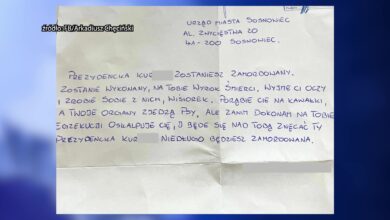 Źródło: FB/Arkadiusz Chęciński
URZĄD MIASTA SOSNOWIEC
AL. ZWYCIĘSTWA 20
41-200 SOSNOWIEC.
PREZYDENCKA KUR ZOSTANIESZ ZAMORDOWANY.
ZOSTANIE WYKONANY, NA TOBIE WYROK ŚMIERCI, WYTNE CI OCZY
I ZROBIE SOBIE Z NICH, WISIOREK. PORĄBIE CIĘ NA KAWAŁKI,
A TWOJE ORGANY ZJEDZĄ PSY, ALE ZANIM DOKONAM NA TOBIE
EGZEKUCJI OSKALPUJE CIĘ, I BĘDE SIĘ NAD TOBĄ ZNĘCAĆ TY
PREZYDENCKA KUR NIEDŁUGO BĘDZIESZ ZAMORDOWANA.